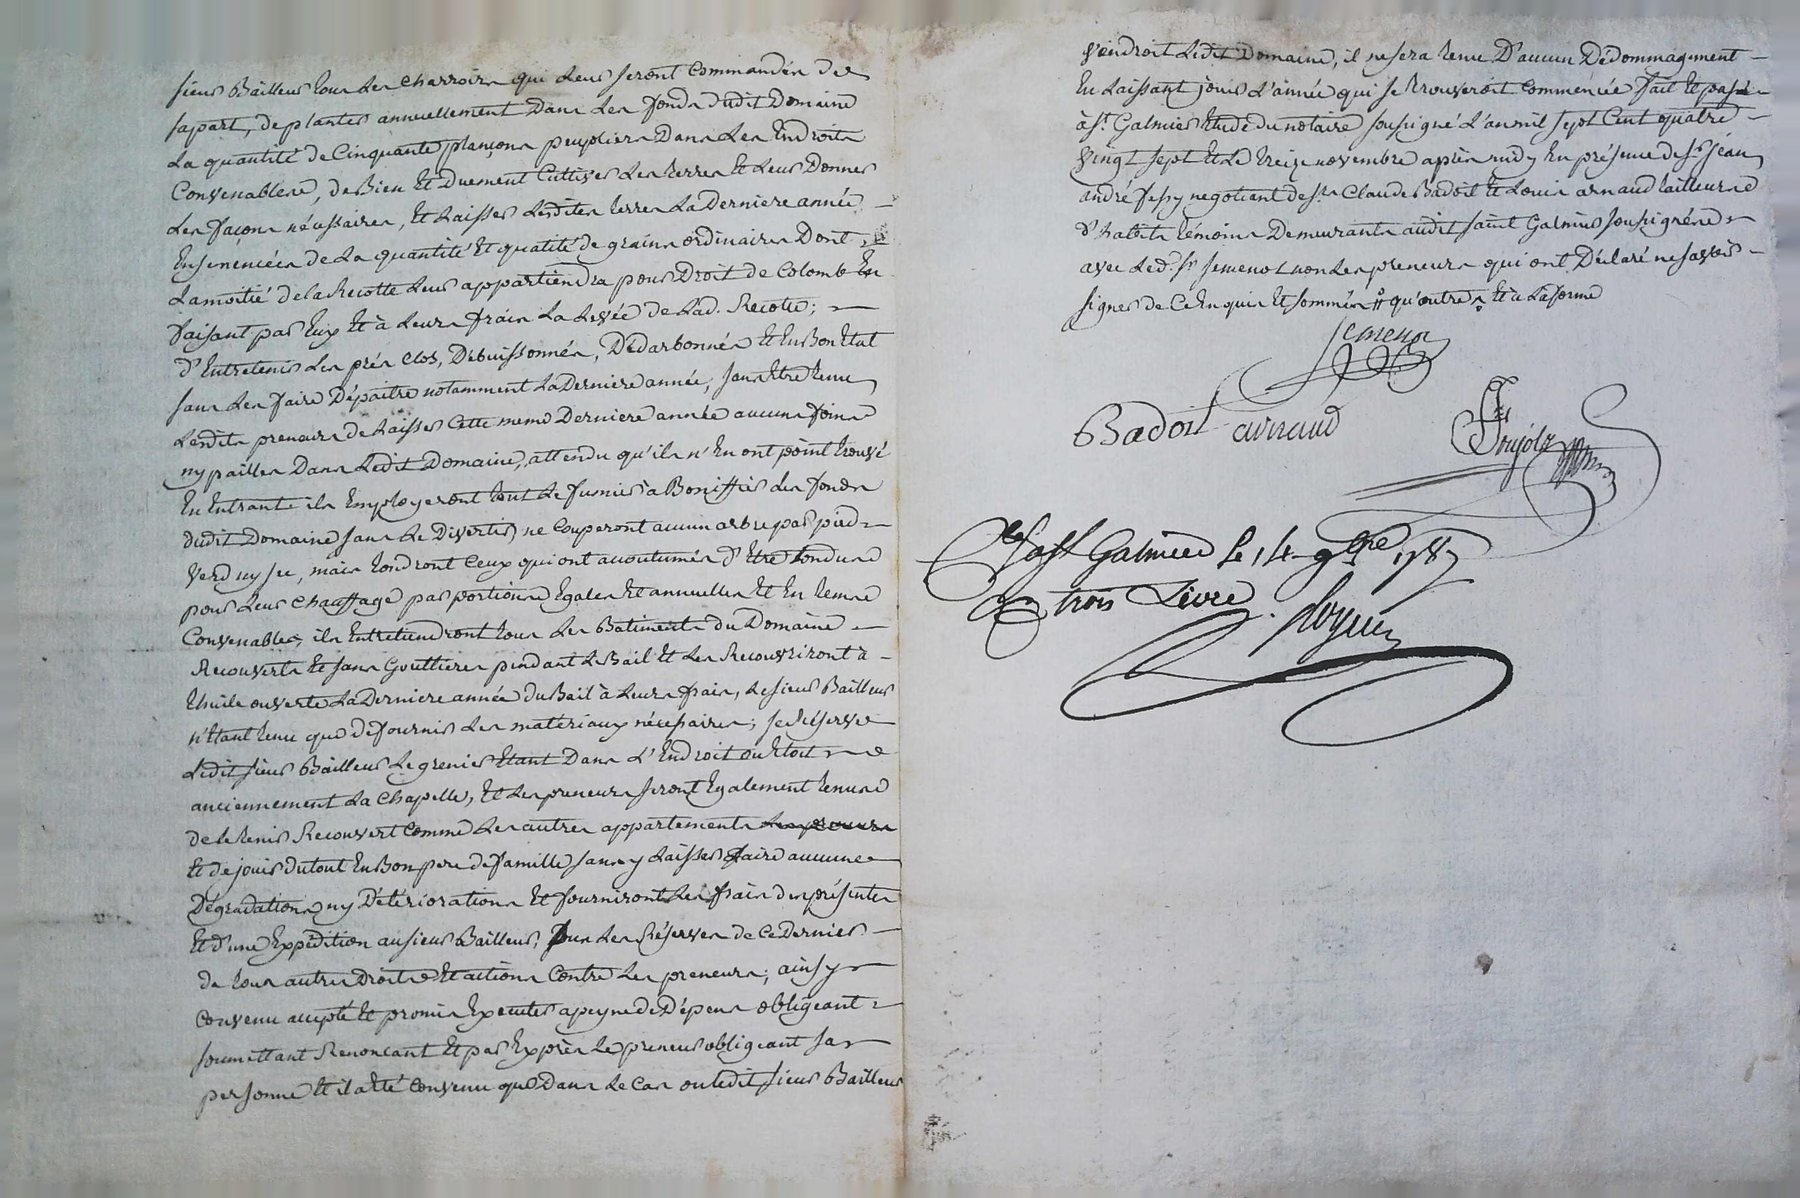 sieur Bailleur tous les charroirs qui leur seront commandés de
sa part, de planter annuellement Dans les fonds dudit Domaine
La quantité de Cinquante plançons peupliers Dans les Endroits
Convenables, de Bien Et Duement Cultiver les terres Et leur Donner
Les façons nécessaires, Et Laisser Lesdites terres La Derniere année
Ensemencées de La quantité Et qualité de grains ordinaires Dont
La moitié de la Récolte Leur appartiendra pour Droit de Colomb En
faisant par Eux Et à Leurs frais La Levée de Lad. Récolte;
d'Entretenir Les prés clos, Débuissonnés, Dédarbonnés Et En Bon Etat
sans Les faire Dépaitre notamment La Derniere année, sans Etre tenu
Lesdits preneurs de Laisser Cette meme Derniere année aucuns foins
ny pailles Dans Ledit Domaine, attendu qu'ils n'En ont point trouvé
En Entrant ils Employeront tout Le fumier à Boniffier les fonds
dudit Domaine sans Le Divertir, ne Couperont aucun arbre par pied
verd ny sec, mais tondront Ceux qui ont accoutumés d'Etre tondus
pour Leur Chauffage par portions Egales Et annuelles Et En tems
Convenable, ils Entretiendront tous Les Batiments du Domaine
Recouverts Et sans Gouttieres pendant Le Bail Et Les Recouvriront à
thuile ouverte La Derniere année du Bail à Leurs frais, Le sieur Bailleur
n'Etant tenu que de fournir Les matériaux nécessaires; se Réserve
Ledit sieur Bailleur Le grenier Etant Dans L'Endroit ou Etoit
anciennement La Chapelle, Et Les preneurs seront Egalement tenus
de le tenir Recouvert Comme Les autres appartements Les preneurs
Et de jouir du tout En Bon pere de famille sans y Laisser faire aucunes
Dégradations ny Détériorations Et fourniront Les frais des présentes
Et d'une Expédition au sieur Bailleur, sous Les Réserves de Ce Dernier
de tous autres Droits Et actions Contre Les preneurs; ainsy
Convenu accepté Et promis Executer a peyne de Dépens obligeant
soumettant Renonçant Et par Exprès Le preneur obligeant sa
personne Et il a Eté Convenu que Dans Le Cas ou ledit sieur Bailleur
vendroit Ledit Domaine, il ne sera tenu D'aucun Dédommagement
En Laissant jouir L'année qui se trouveroit Commencée fait Et passé
à St Galmier Etude du notaire soussigné L'an mil sept Cent quatre
vingt sept Et Le treize novembre après midy En présence de Sr jean
andré fessy negotiant de Sr Claude Badoil Et Louis arnaud tailleurs
d'habits témoins Demeurants audit saint Galmier soussignés
avec Led. Sr jemenot non Les preneurs qui ont Déclaré ne savoir
signer de Ce Enquis Et sommés qu'outre Et à La forme
jemenot
Badoil arnaud
Clé a St Galmier Le 14 9bre 1787
trois Livre